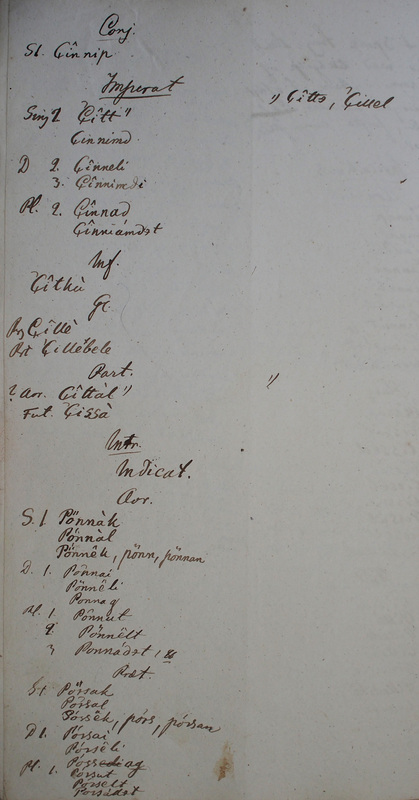 Conj.
S1. Ćinnip
Imperat
Sing 2. Ćîtt" " Ćitts, Ćillel
Ćinnimd
D 2. Ćinneli
3. Ćinnimdi
Pl. 2. Ćinnad
Ćinniámdst
Inf.
Ćithù
Ge.
Prs Ćillè
Prt Ćillebele
Part.
? Aor. Ćittàl" "
Fut. Ćissà
Intr.
Indicat.
Aor.
S. 1 Pönnàk
Pönnàl
Pönnêk, pönn, pönnan
D. 1. Pönnai
Pönnêli
Ponnag
Pl. 1. Pönnut
2 Pönnêlt
3 Ponnádst
Præt.
S1 Pörsak
Pörsal
Pörsêk, pörs, pörsan
D 1. Pörsai
Pörsêli
Pl. 1. Pörsut
Pörselt
Porsádst